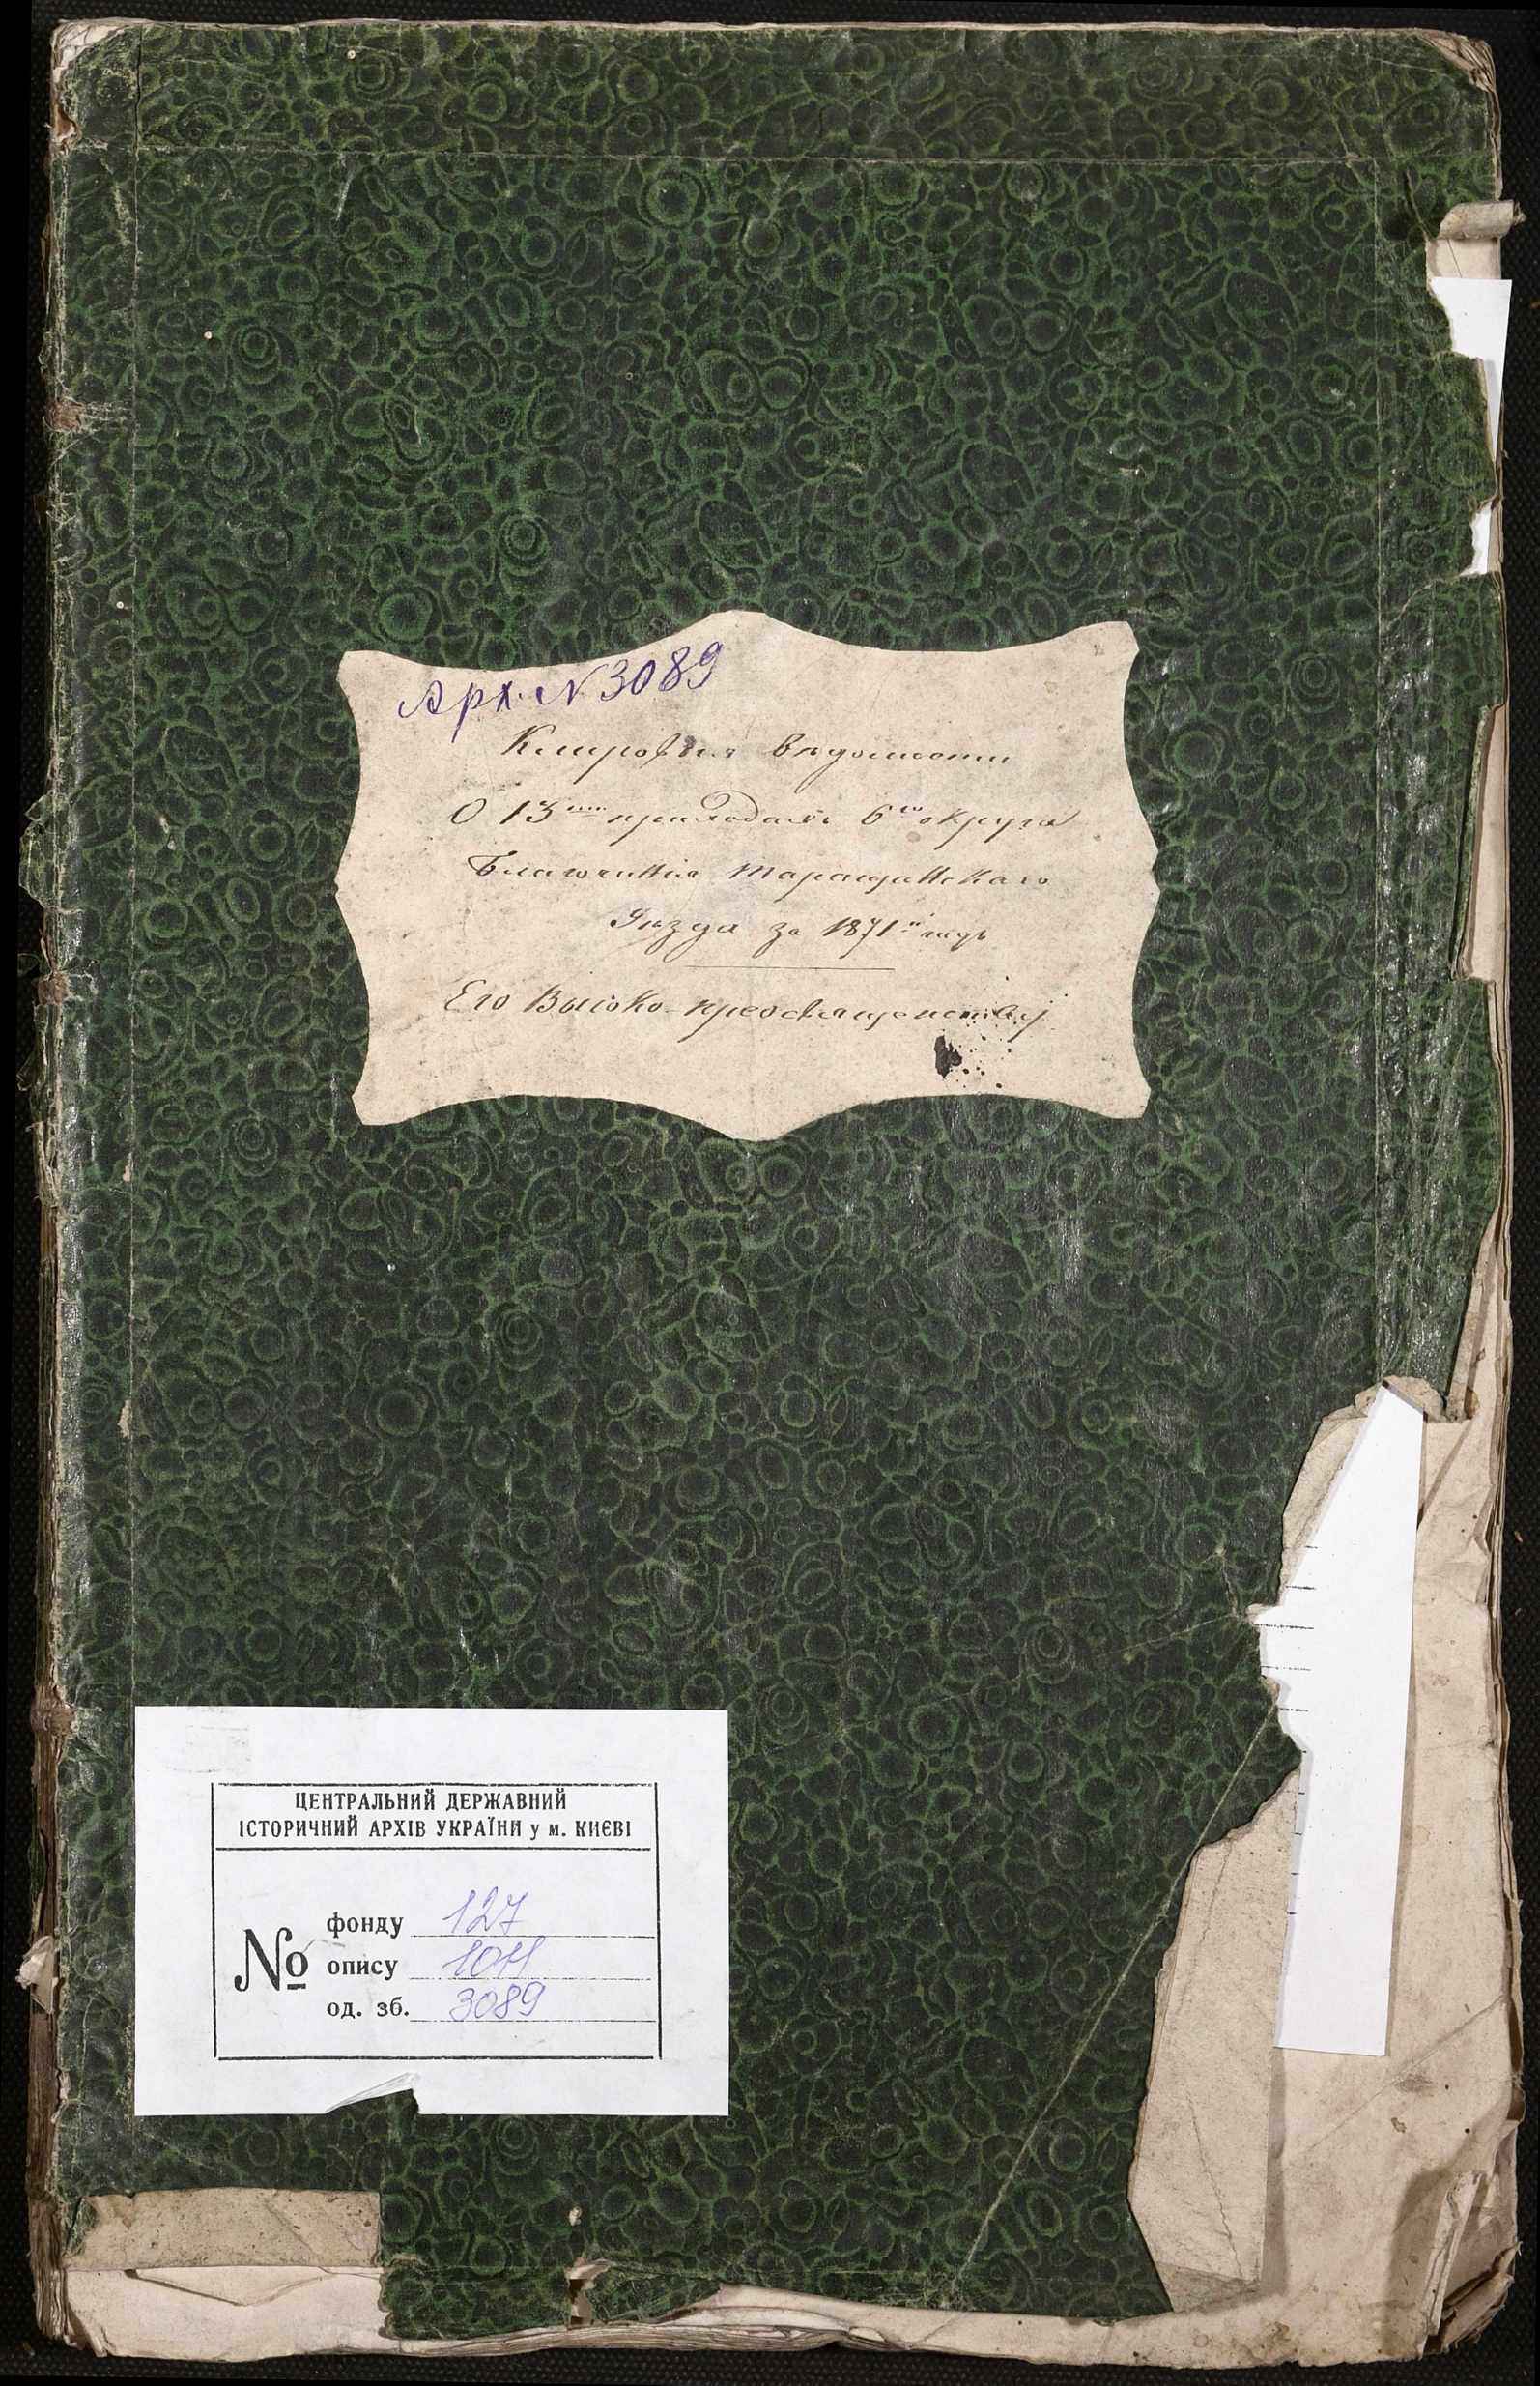 Арх. № 3089
Клировыя вѣдомости
О 13ти приходахъ 6го округа
Благочинія Таращанскаго
Уѣзда за 1871й годъ
Его Высоко-преосвященству
ЦЕНТРАЛЬНИЙ ДЕРЖАВНИЙ
ІСТОРИЧНИЙ АРХІВ УКРАЇНИ у м. КИЄВІ
№
фонду 127
опису 1011
од. зб. 3089